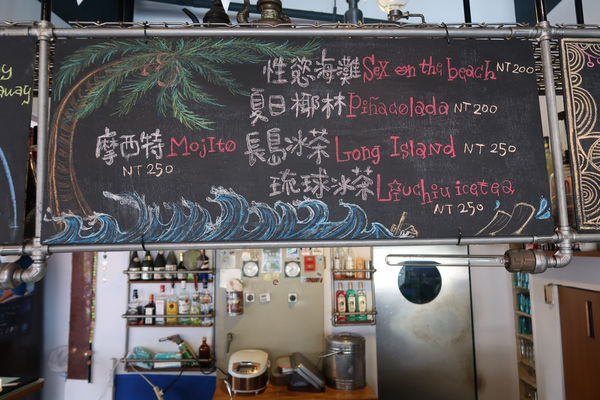 性慾海灘 Sex on the beach NT200
夏日椰林 Piñacolada NT 200
摩西特 MojIto
NT 250
長島冰茶 Long Island NT 250
琉球冰茶 Liuchiu icetea
NT 250